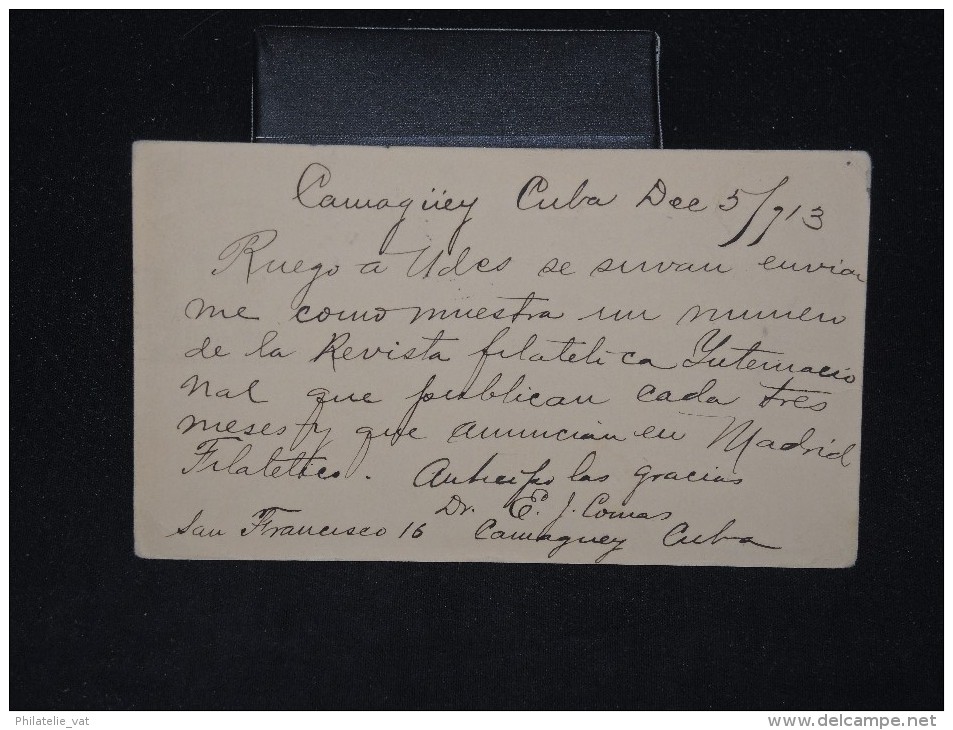 Camagüey Cuba Dec 5/913
Ruego a Udes se sirvan enviar
me como muestra un numero
de la Revista filatelica Internacio
nal que publican cada tres
meses y que anuncian en Madrid
Filatelico. Anticipo las gracias
Dr. E. J. Comas
San Francisco 16 Camaguey Cuba
Philatelie_vat
www.delcampe.net